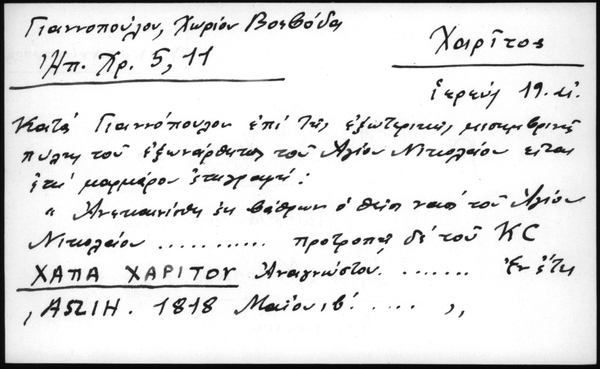 Γιαννοπούλου, Χωρίον Βοεβόδα
Ἠπ. Χρ. 5, 11
Χαρῖτος
ἱερεύς 19. αἰ.
Κατά Γιαννόπουλον ἐπί τῆς ἐξωτερικῆς μεσημβρινῆς
πύλης τοῦ ἐξωνάρθηκος τοῦ Ἁγίου Νικολάου εἶναι
ἐπί μαρμάρου ἐπιγραφή:
" Ἀνεκαινίσθη ἐκ βάθρων ὁ θεῖος ναός τοῦ Ἁγίου
Νικολάου ........... προτροπῇ δέ τοῦ ΚC
ΧΑΠΑ ΧΑΡΙΤΟΥ Ἀναγνώστου. ....... Ἐν ἔτει
, ΑΩΙΗ. 1818 Μαΐου ιβ'. .... "